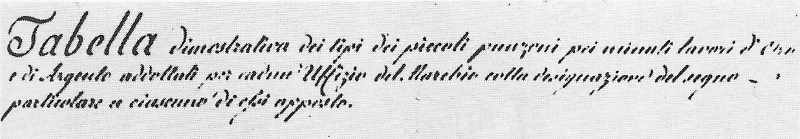 Tabella dimostrativa dei tipi dei piccoli punzoni pei minuti lavori d'Oro
e di Argento addottati per cadun' Uffizio del Marchio colla designazione del segno
particolare a ciascuno di essi apposto.